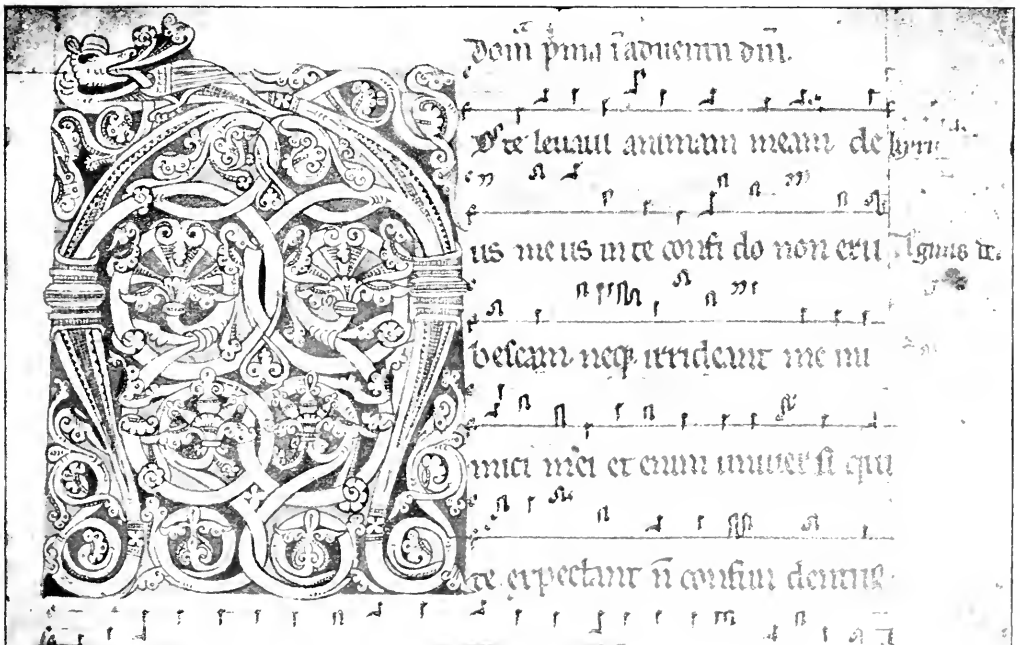 Dom̄ p̄ma ī aduentu dn̄i.
D te leuaui animam meam de
us meus in te confi do non eru
bescam neqꝫ irrideant me ini
mici mei et enim uniuer si qui
te expectant n̄ confun dentur
Agnus de.